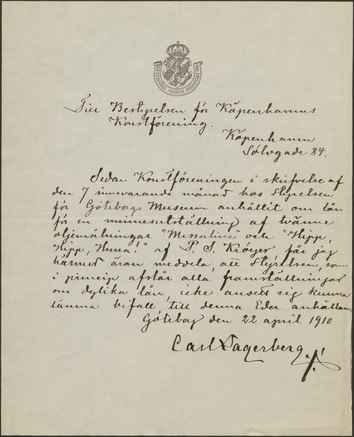 Till Bestyrelsen för Köpenhamns
Konstförening.
Köpenhamn
Sølvgade 84.
Sedan Konstföreningen i skrifvelse af
den 7 innevarande månad hos Styrelsen
för Göteborgs Museum anhållit om lån
för en minnesutställning af tvänne
oljemålningar "Messalina" och "Hipp,
Hipp, Hurra!" af P. S. Kröyer får jag
härmed äran meddela, att Styrelsen, som
i princip afslår alla framställningar
om dylika lån, icke ansett sig kunna
lämna bifall till denna Eder anhållan
Göteborg den 22 april 1910
Carl Lagerberg